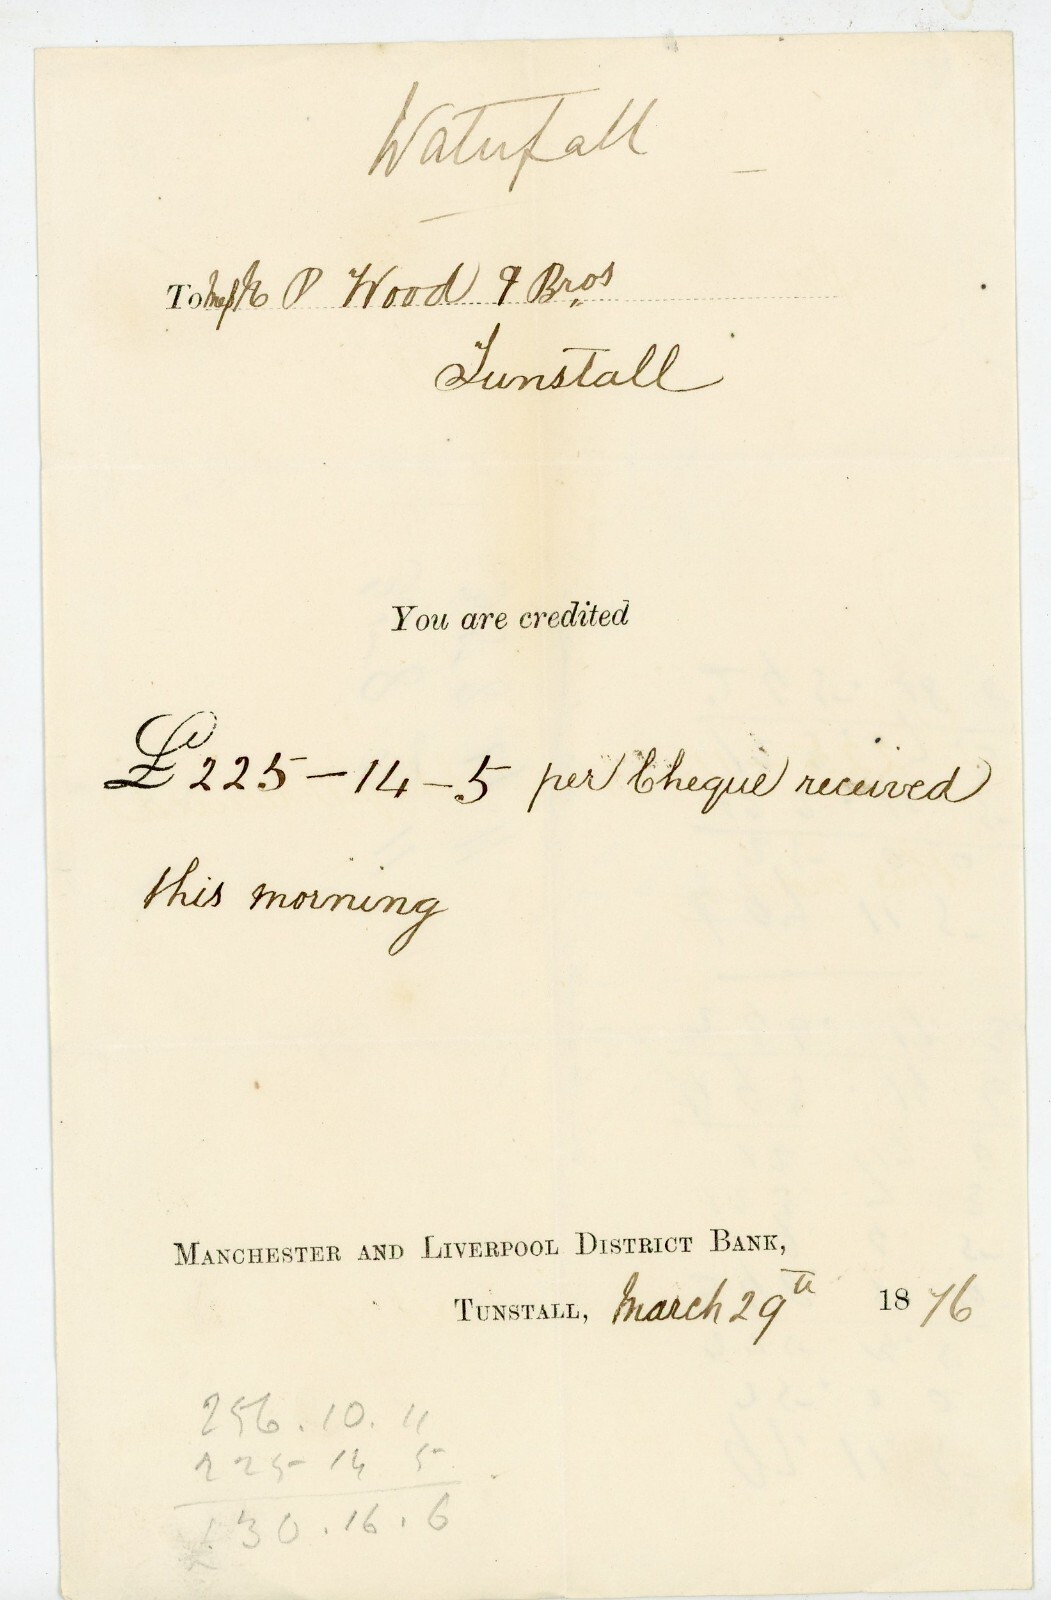 Waterfall
To Messrs P Wood & Bros
Tunstall
You are credited
£225-14-5 per Cheque received
this morning
MANCHESTER AND LIVERPOOL DISTRICT BANK,
TUNSTALL, March 29th 1876
256.10.11
225-14 5
£30.16.6